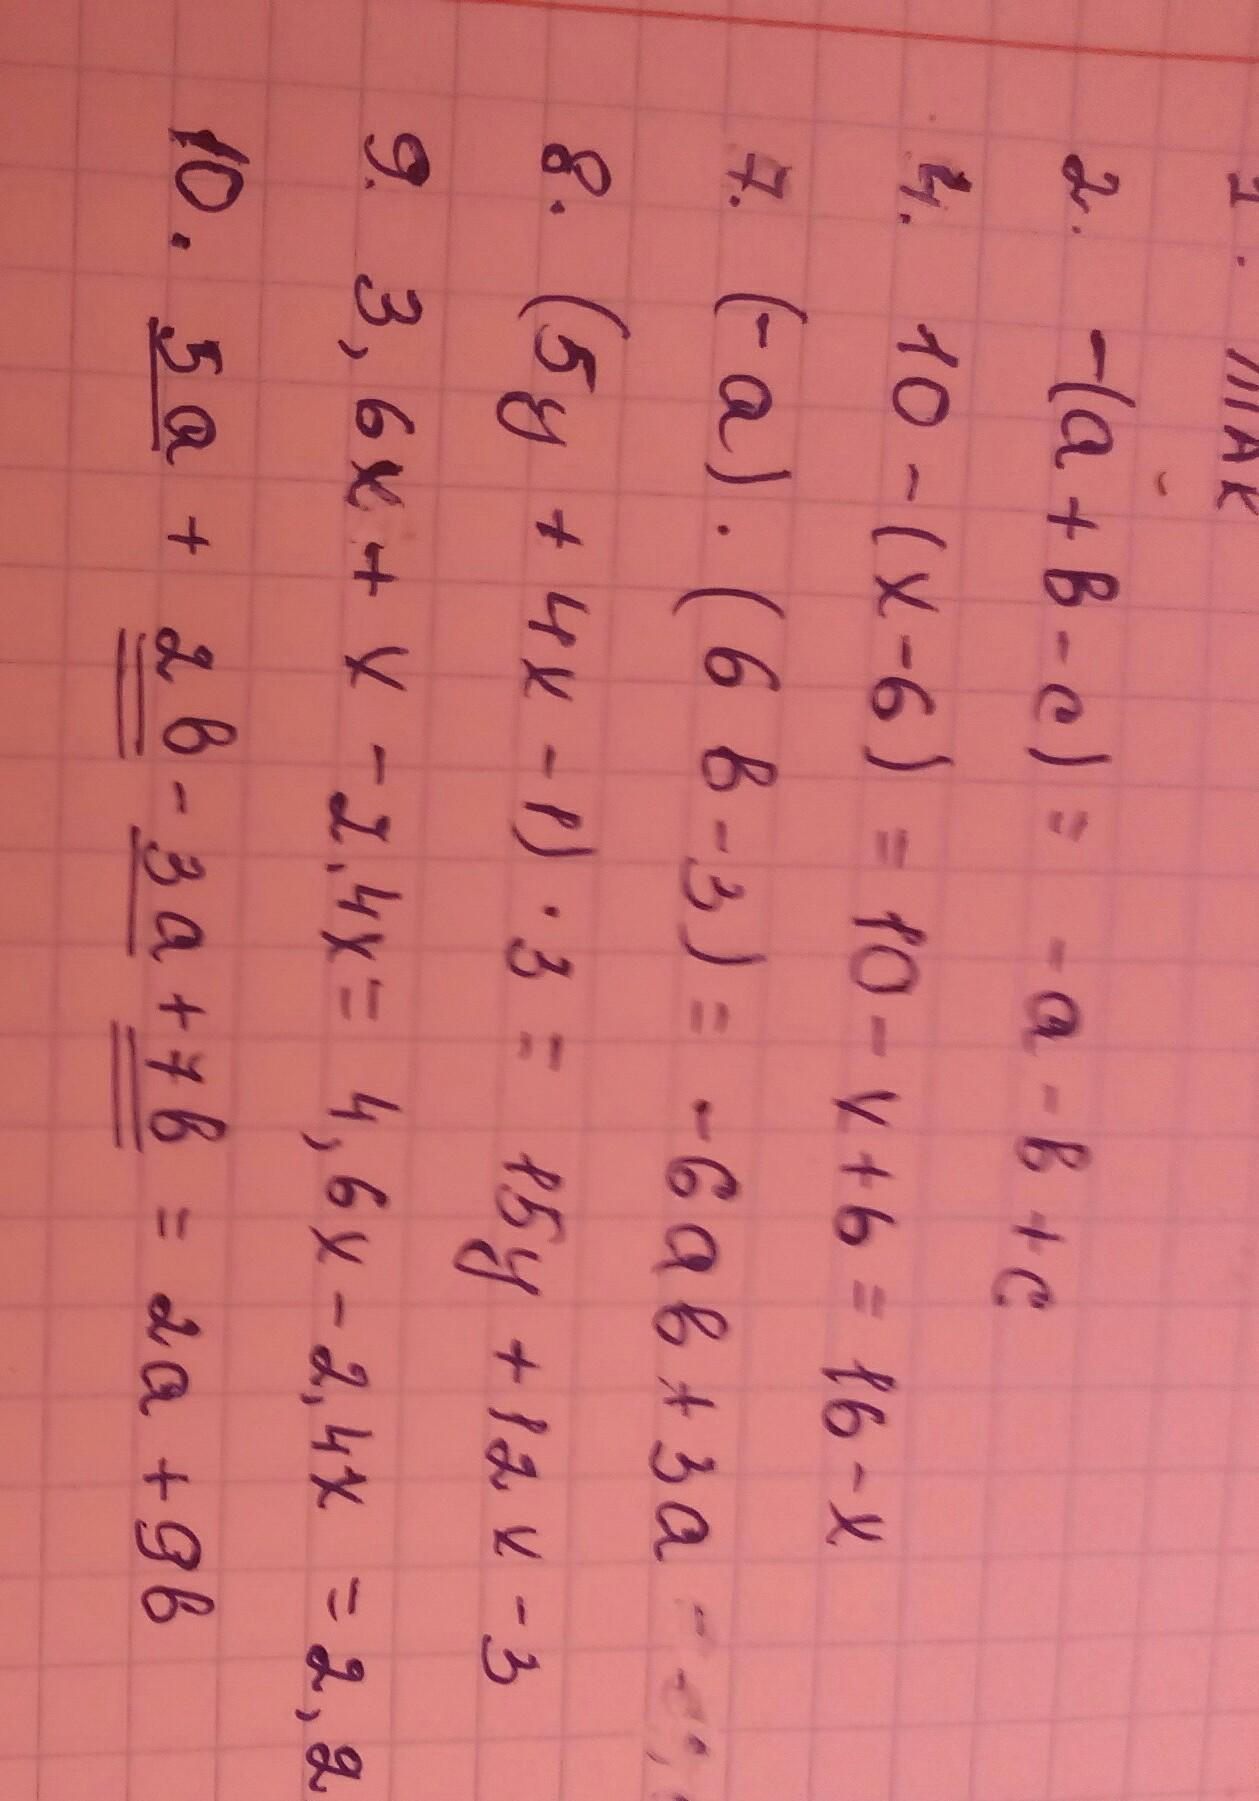 1. так
2. -(a + b - c) = -a - b + c
4. 10 - (x - 6) = 10 - x + 6 = 16 - x
7. (-a) · (6b - 3) = -6ab + 3a
8. (5y + 4x - 1) · 3 = 15y + 12x - 3
9. 3,6x + x - 2,4x = 4,6x - 2,4x = 2,2
10. 5a + 2b - 3a + 7b = 2a + 9b